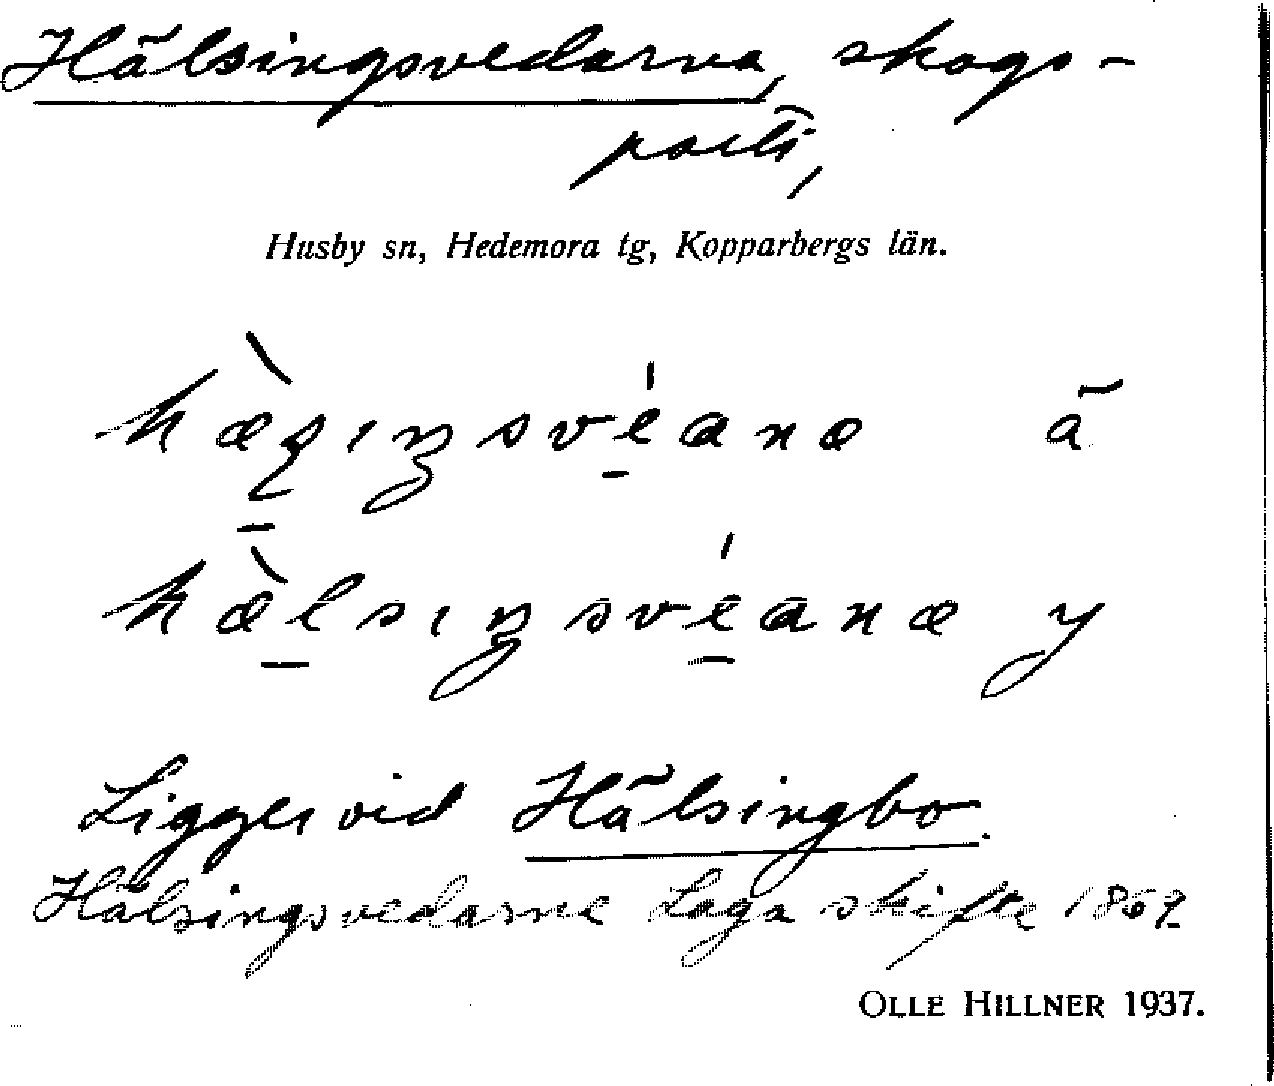 Hälsingsvedarna, skogs-
parti,
Husby sn, Hedemora tg, Kopparbergs län.
ä
hæ̀lsiŋsvéana y
Ligger vid Hälsingbo.
Hälsingsvedarne Laga skifte 1869
OLLE HILLNER 1937.